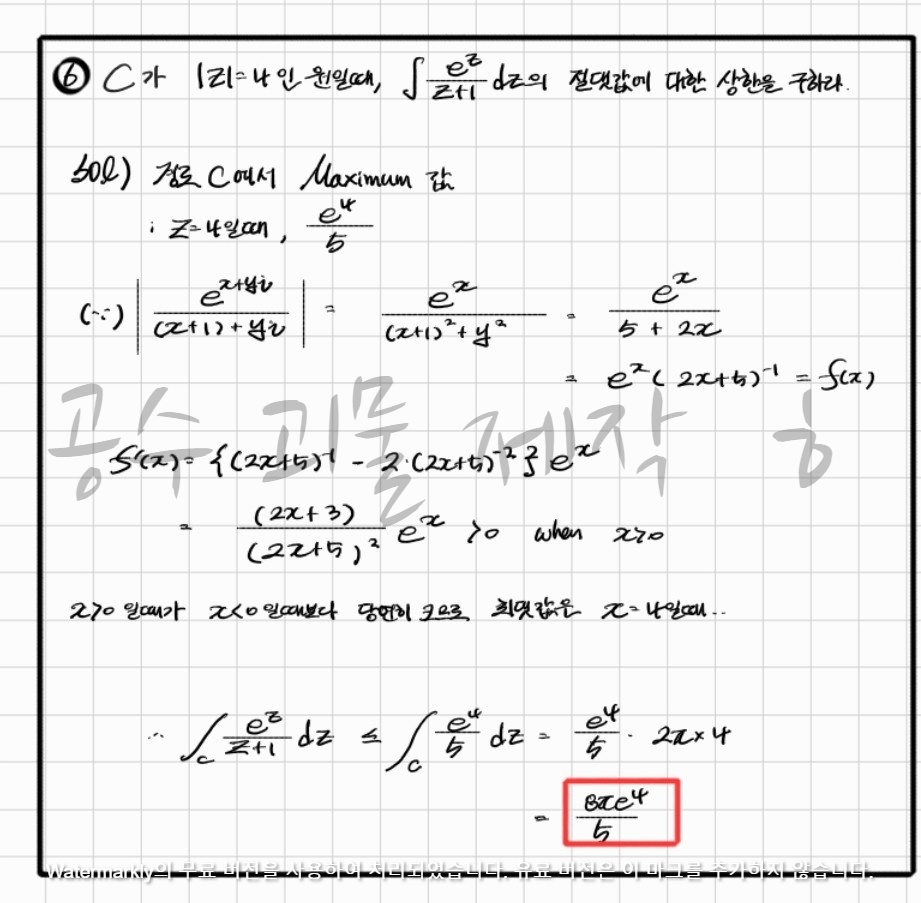 ⑥ C가 |z|=4 인 원일때, ∫ e^z/(z+1) dz의 절댓값에 대한 상한을 구하라.
sol) 경로 C에서 Maximum 값
: z=4일때, e^4/5
(∵) | e^(x+yi) / ((x+1)+yi) | = e^x / ((x+1)^2+y^2) = e^x / (5+2x)
= e^x(2x+5)^-1 = f(x)
공수 괴물 제작 ㅎ
f'(x) = {(2x+5)^-1 - 2·(2x+5)^-2} e^x
= (2x+3)/(2x+5)^2 e^x >0 when x>0
x>0 일때가 x<0 일때보다 당연히 크므로 최댓값은 x=4일때..
∴ ∫_C e^z/(z+1) dz ≤ ∫_C e^4/5 dz = e^4/5 · 2π×4
= 8πe^4/5
Watermarkly의 무료 버전을 사용하여 처리되었습니다. 유료 버전은 이 마크를 추가하지 않습니다.